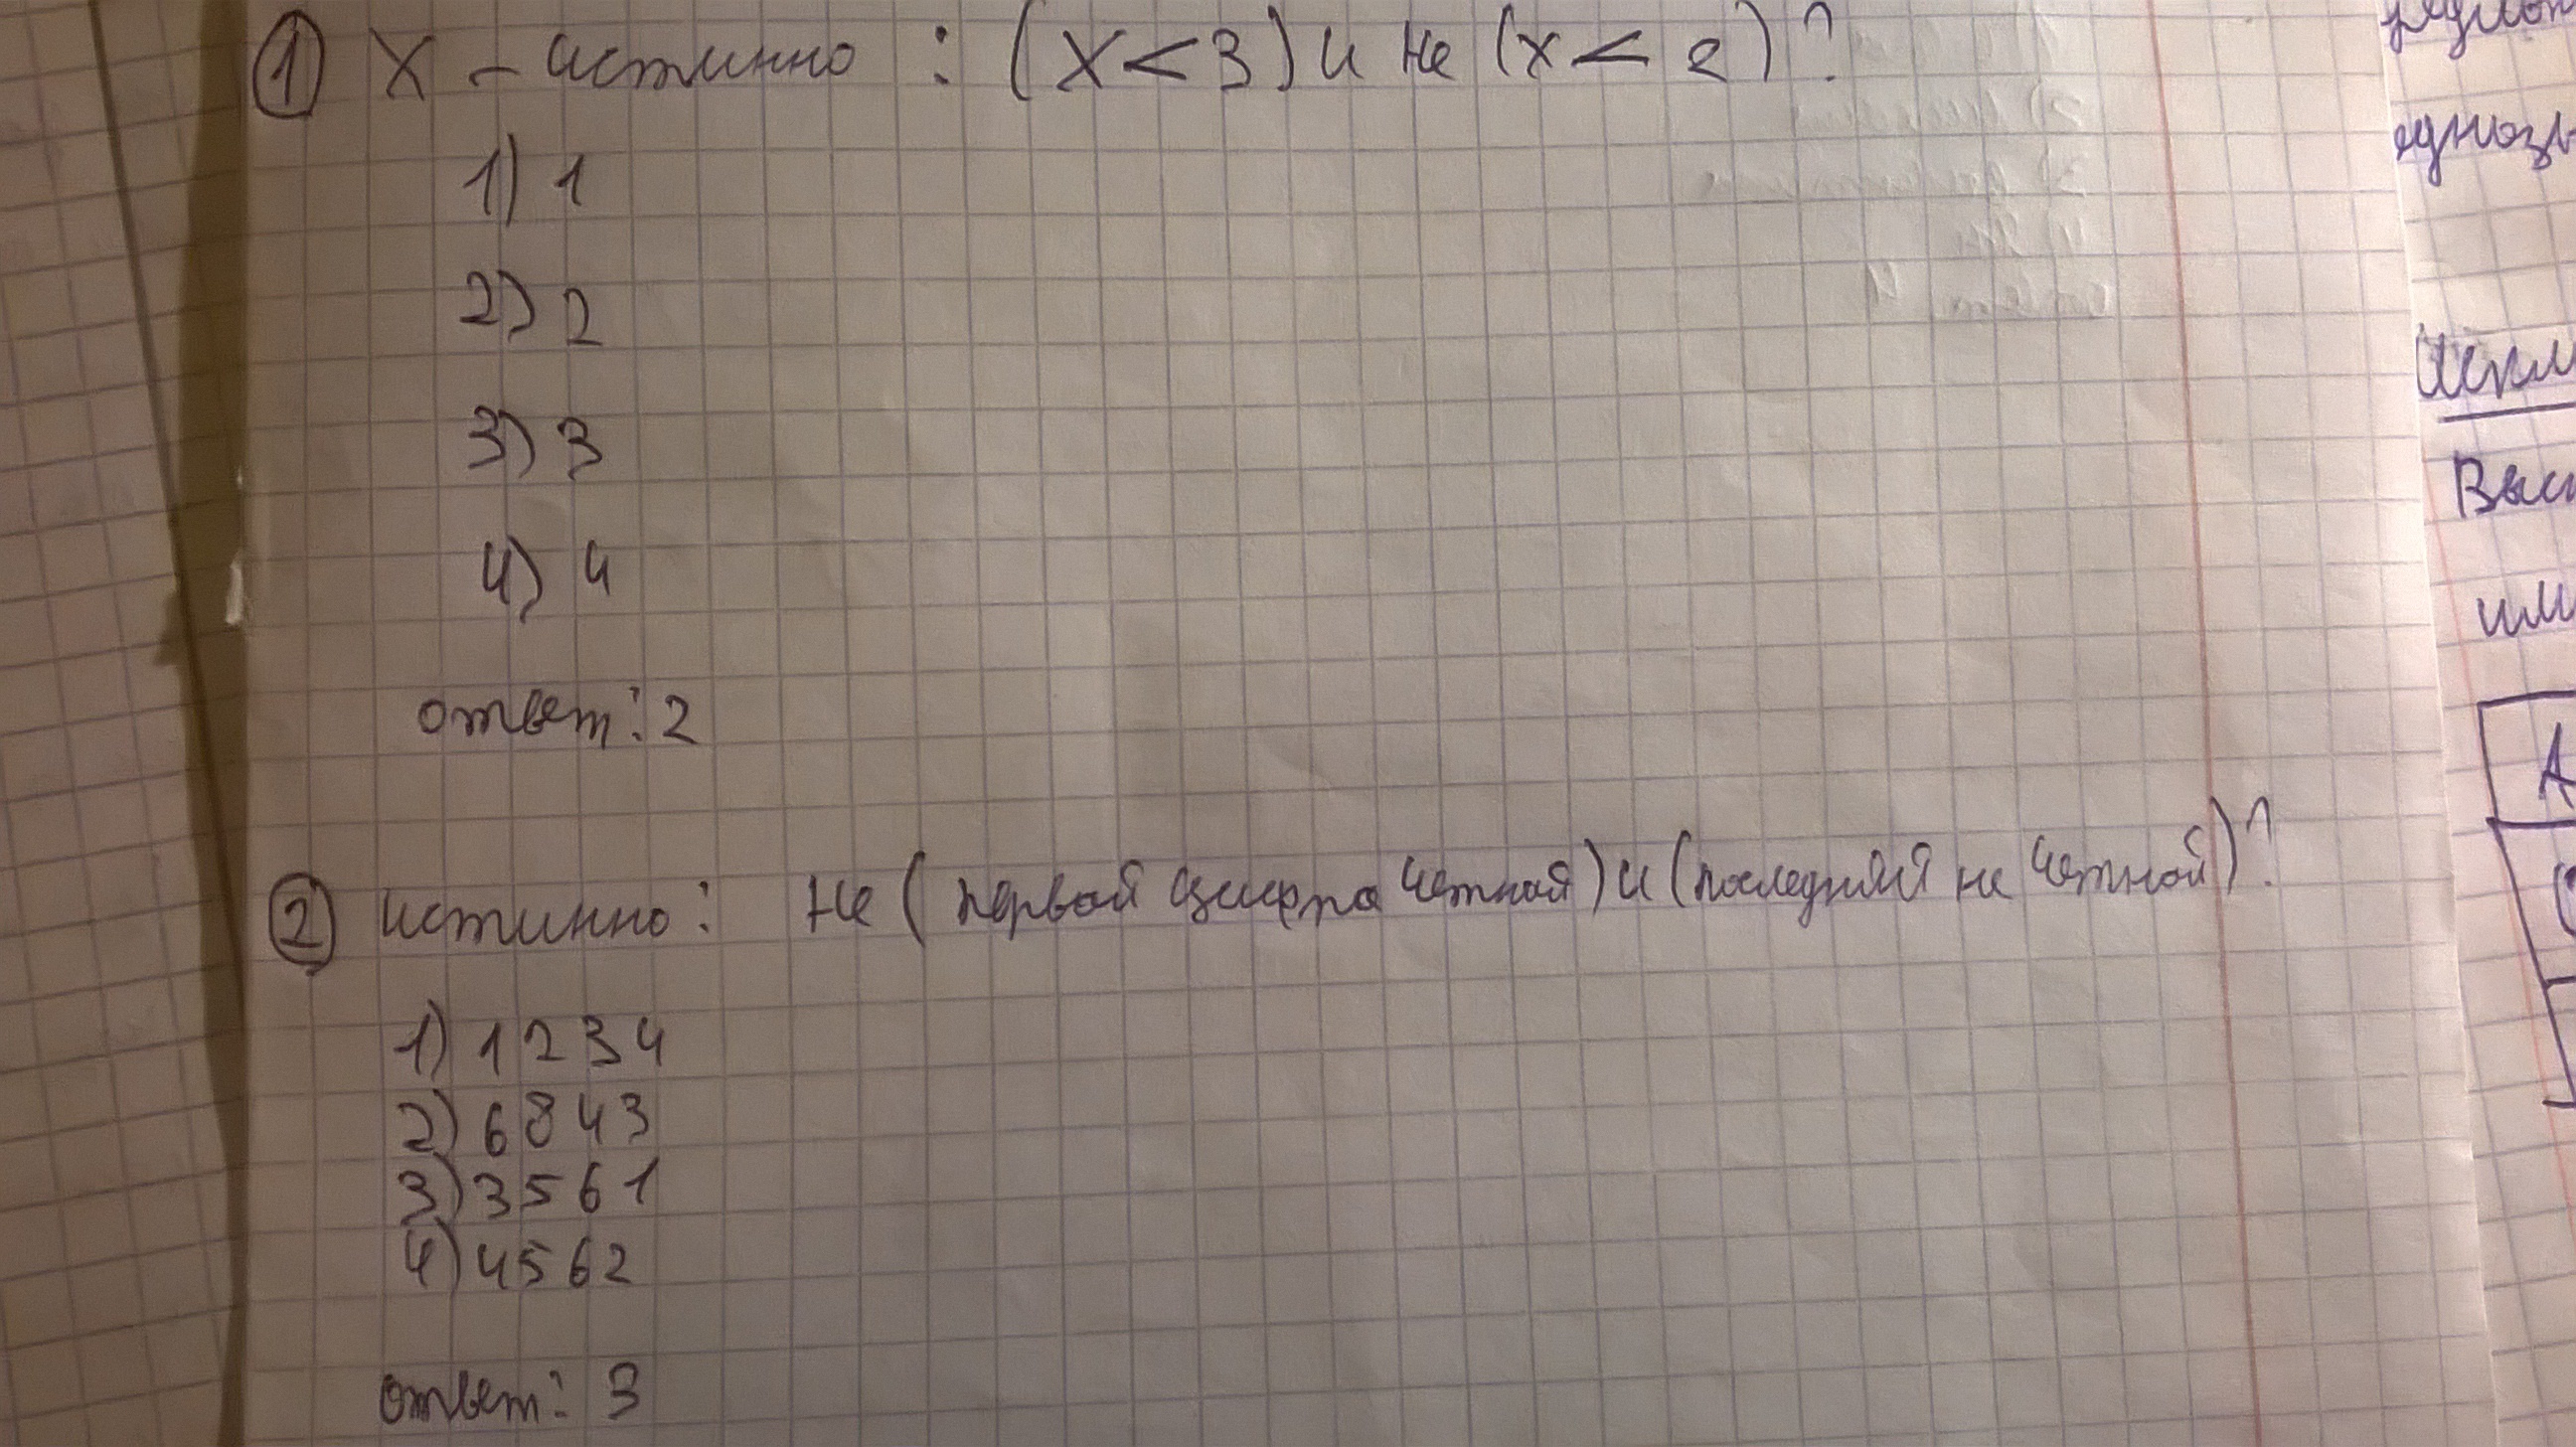 ① X – истинно : (X < 3) и не (x < 2)?
1) 1
2) 2
3) 3
4) 4
ответ: 2
② истинно: не (первой цифра четная) и (последняя не четной)?
1) 1234
2) 6843
3) 3561
4) 4562
ответ: 3
Выс
А